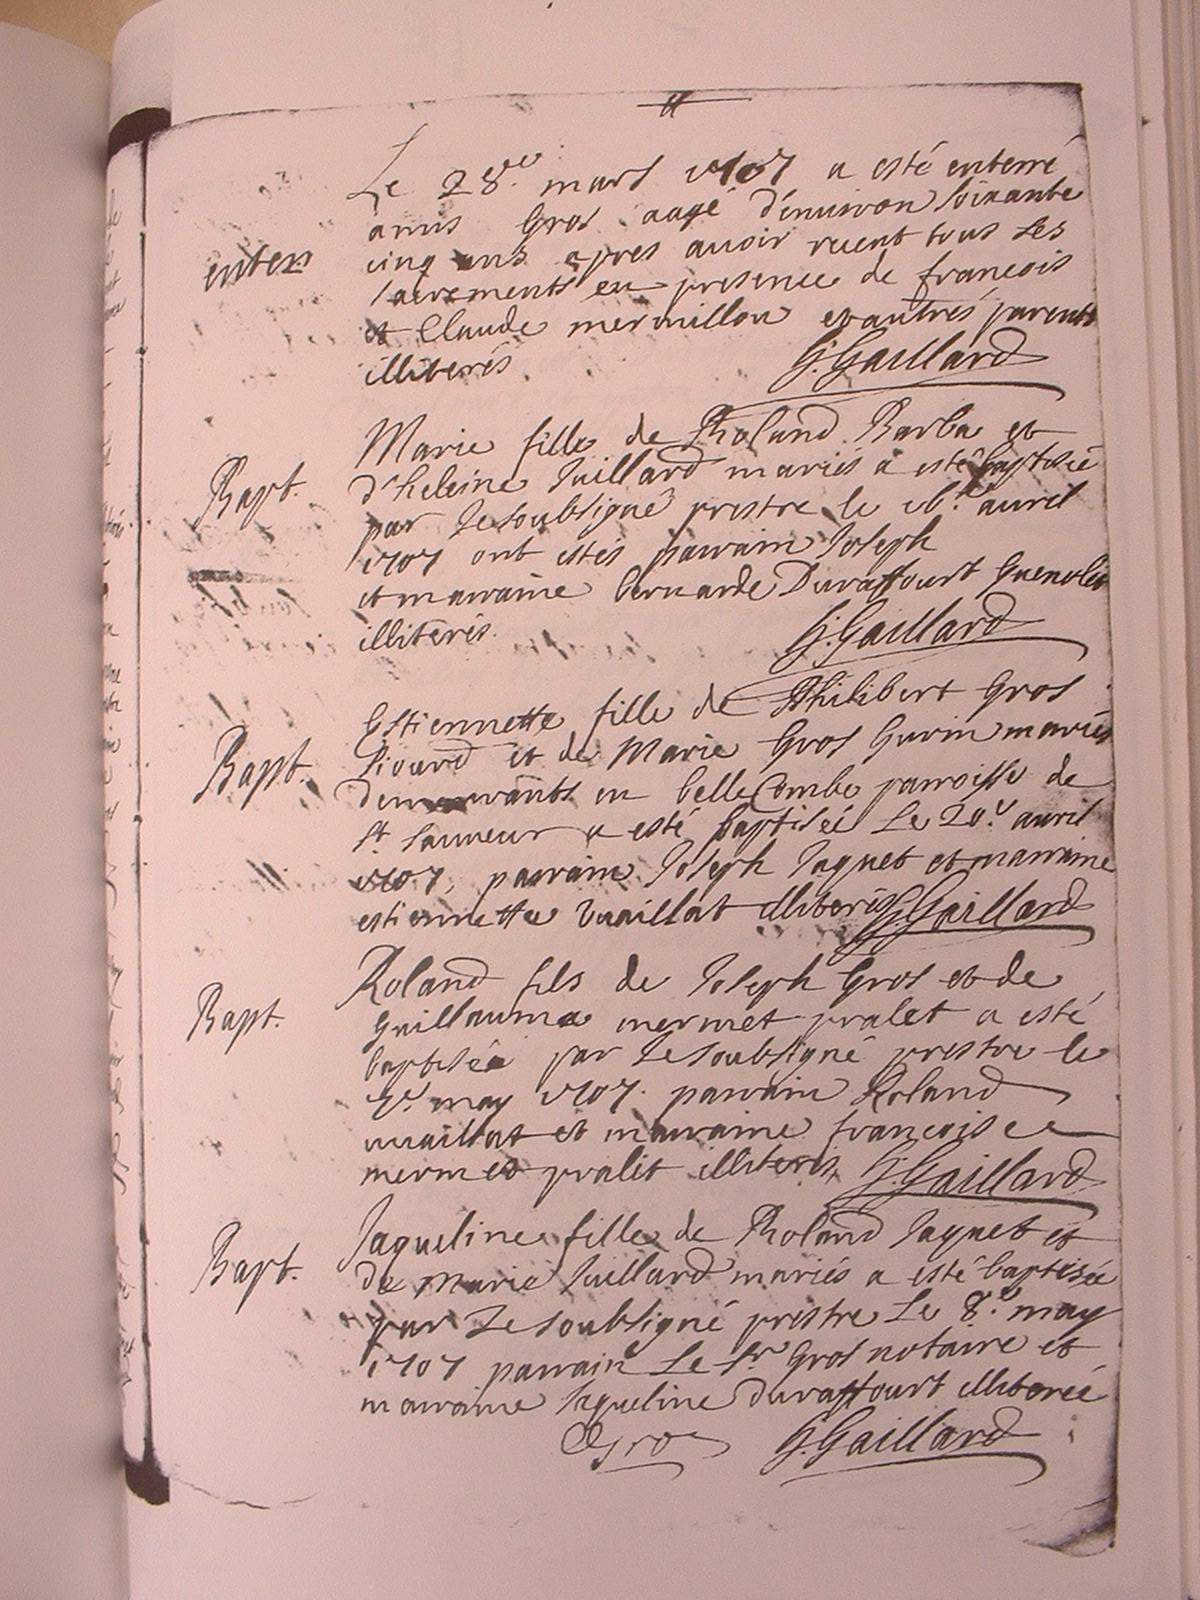 Le 28.e mars 1707 a esté enterré
enterr.
anus Gros aagé d'enuiron soixante
cinq ans apres auoir receut tous les
sacrements en presence de francois
et Claude mermillon et autres parents
illiterés G. Gaillard
Marie fille de Roland Barba et
Bapt.
d'heleine Juillard mariés a esté baptisée
par Je soubsigné prestre le auril
1707 ont estés parrain Joseph
et marraine bernarde Duraffourt Guenolet
illiterés. G. Gaillard
Estiennette fille de Philibert Gros
Bapt.
et de Marie Gros Gurin mariés
demeurants en belleCombe parroisse de
St Sauueur a esté baptisée Le 20.e auril
1707, parrain Joseph Jaquet et marraine
estiennette Vuaillat illiterés G. Gaillard
Roland fils de Joseph Gros et de
Bapt.
Guillauma mermet pralet a esté
baptisée par Je soubsigné prestre le
7.e may 1707. parrain Roland
vuaillat et marraine francoise
mermet pralet illiterés G. Gaillard
Jaqueline fille de Roland Jaquet et
Bapt.
de Marie Juillard mariés a esté baptisée
par Je soubsigné prestre Le 8.e may
1707 parrain Le Sr Gros notaire et
marraine Jaqueline duraffourt illiterée
Gros G. Gaillard